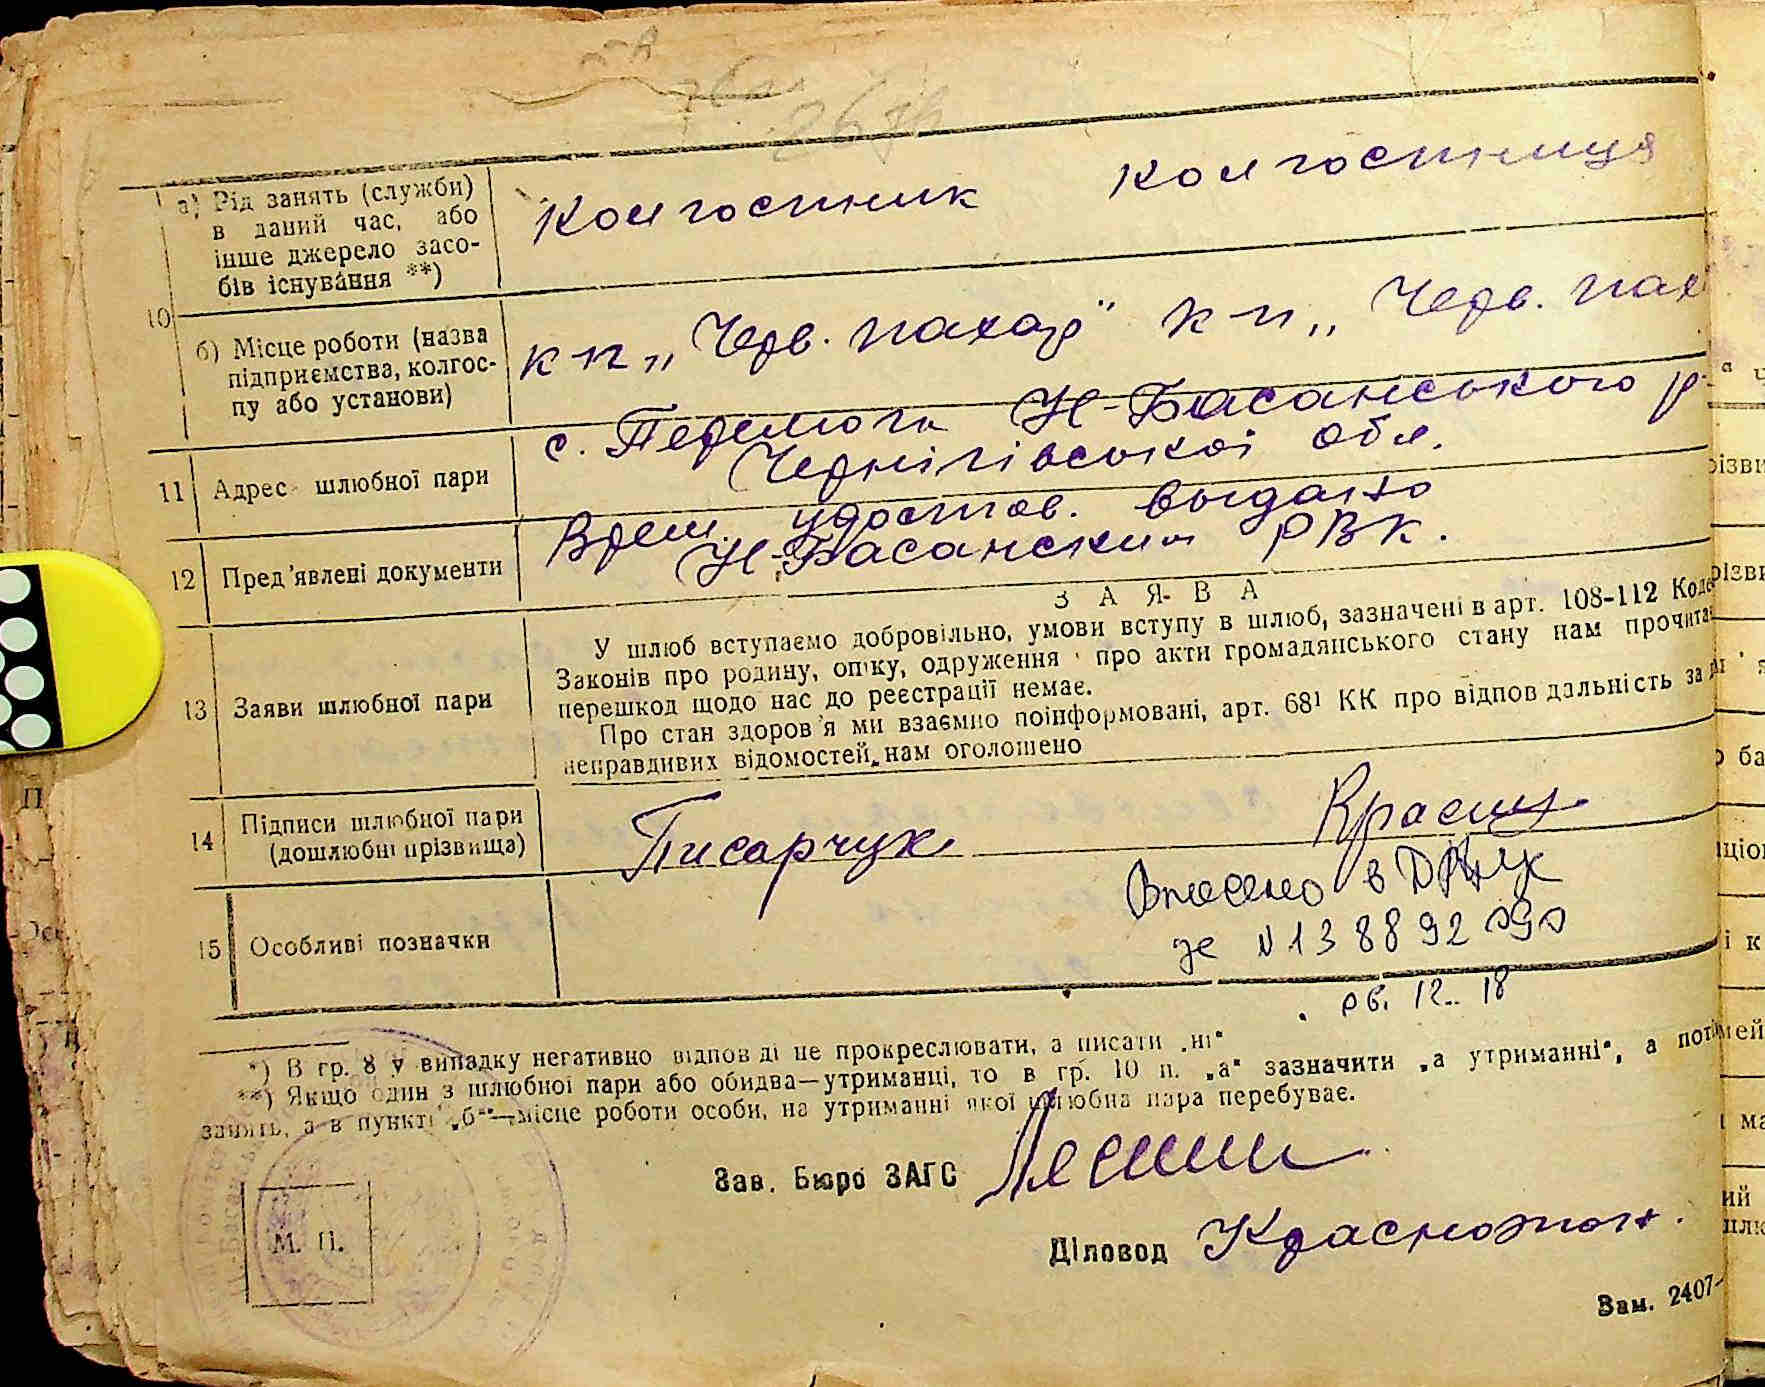 а) Рід занять (служби)
в даний час, або
інше джерело засо-
бів існування **)
Колгоспник Колгоспниця
10
б) Місце роботи (назва
підприємства, колгос-
пу або установи)
к-п „Черв. пахар" к-п „Черв. пах
11 Адрес шлюбної пари
с. Перемога Н-Басанського р-
Чернігівської обл.
12 Пред'явлені документи
Врем. удостов. выдано
Н-Басанским РВК.
13 Заяви шлюбної пари
ЗАЯВА
У шлюб вступаємо добровільно, умови вступу в шлюб, зазначені в арт. 108-112 Коде
Законів про родину, опіку, одруження про акти громадянського стану нам прочита
перешкод щодо нас до реєстрації немає.
Про стан здоров'я ми взаємно поінформовані, арт. 68¹ КК про відповідальність за
неправдивих відомостей нам оголошено
14 Підписи шлюбної пари
(дошлюбні прізвища)
Писарчук
15 Особливі позначки
Внесено в ДРАЦС
за N 138892
06. 12. 18
*) В гр. 8 у випадку негативно відпов ді не прокреслювати, а писати „ні"
**) Якщо один з шлюбної пари або обидва—утриманці, то в гр. 10 п. „а" зазначити „а утриманні", а пот
занять, а в пункті „б"—місце роботи особи, на утриманні якої шлюбна пара перебуває.
Зав. Бюро ЗАГС
Діловод
М. П.
Зам. 2407-